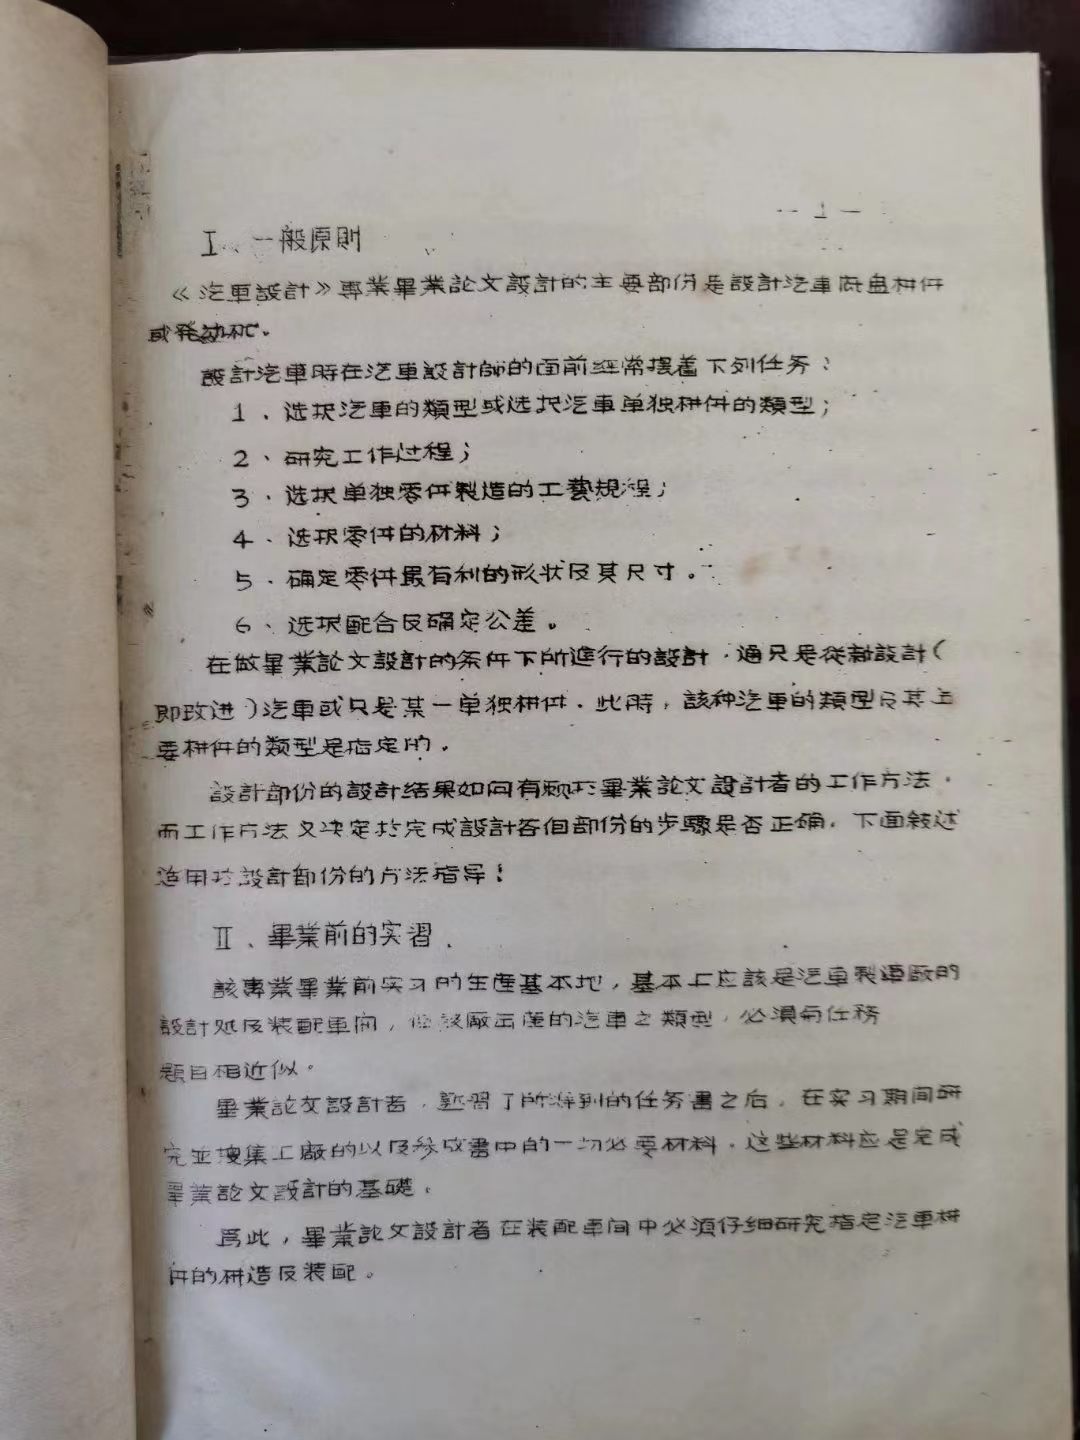 — 1 —
I、一般原則
《汽車設計》專業畢業論文設計的主要部份是設計汽車底盘構件
或発动机。
設計汽車時在汽車設計師的面前經常擺着下列任务：
1、选択汽車的類型或选択汽車单独構件的類型；
2、研究工作过程；
3、选択单独零件製造的工藝規程；
4、选択零件的材料；
5、确定零件最有利的形状及其尺寸。
6、选択配合及确定公差。
在做畢業論文設計的条件下所進行的設計，通只是從新設計（
即改进）汽車或只是某一单独構件．此時，該种汽車的類型及其主
要構件的類型是指定的．
設計部份的設計結果如何有賴於畢業論文設計者的工作方法，
而工作方法又决定於完成設計各個部份的步驟是否正确．下面敍述
适用於設計部份的方法指导！
II、畢業前的实習．
該專業畢業前实习的生産基本地，基本上应該是汽車製造廠的
設計处及装配車间，但該廠出産的汽車之類型，必須与任務
題目相近似。
畢業論文設計者，熟習了所得到的任务書之后，在实习期间研
究並搜集工廠的以及参攷書中的一切必要材料．这些材料应是完成
畢業論文設計的基礎．
爲此，畢業論文設計者在装配車间中必須仔细研究指定汽車構
件的構造及装配。